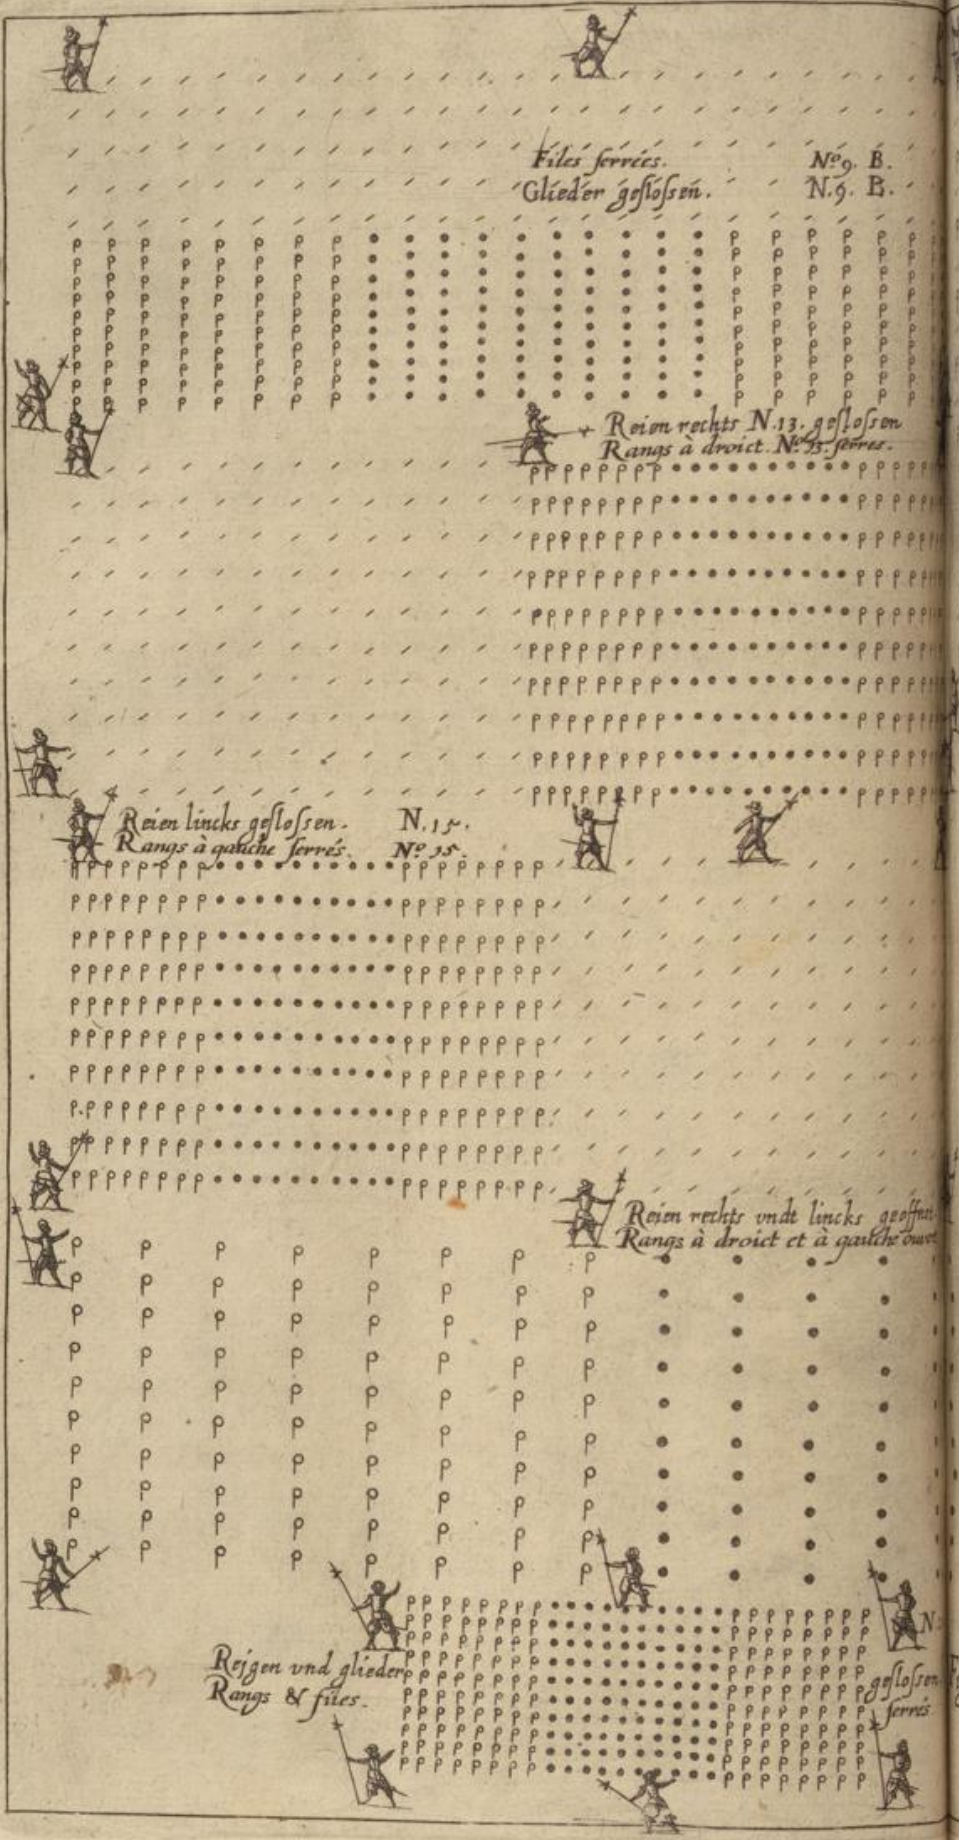 Files serrées. Nº 9. B.
Glieder geslossen. N. 9. B.
Reien rechts N. 13. geslossen
Rangs à droict. Nº 13. serres.
Reien lincks geslossen. N. 15.
Rangs à gauche serrés. Nº 15.
Reien rechts vndt lincks geoffnet
Rangs à droict et à gauche ouvert
N:
Reigen vnd glieder geslossen
Rangs & files. serrés